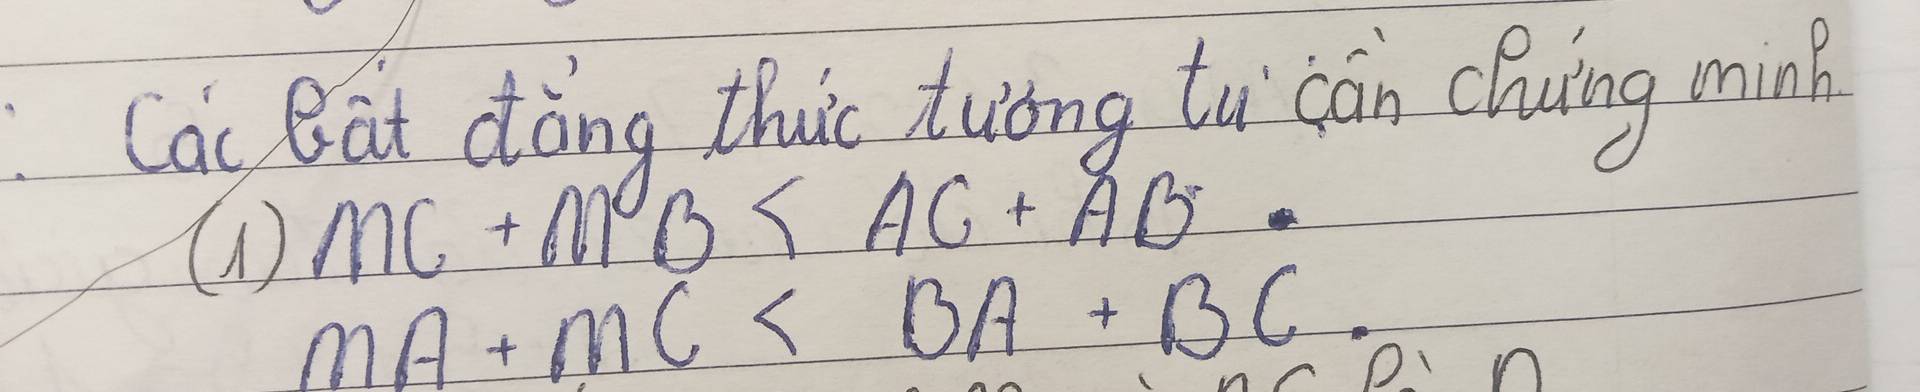 Các bất đẳng thức tương tự cần chứng minh
(1) MC + MB < AC + AB.
MA + MC < BA + BC.